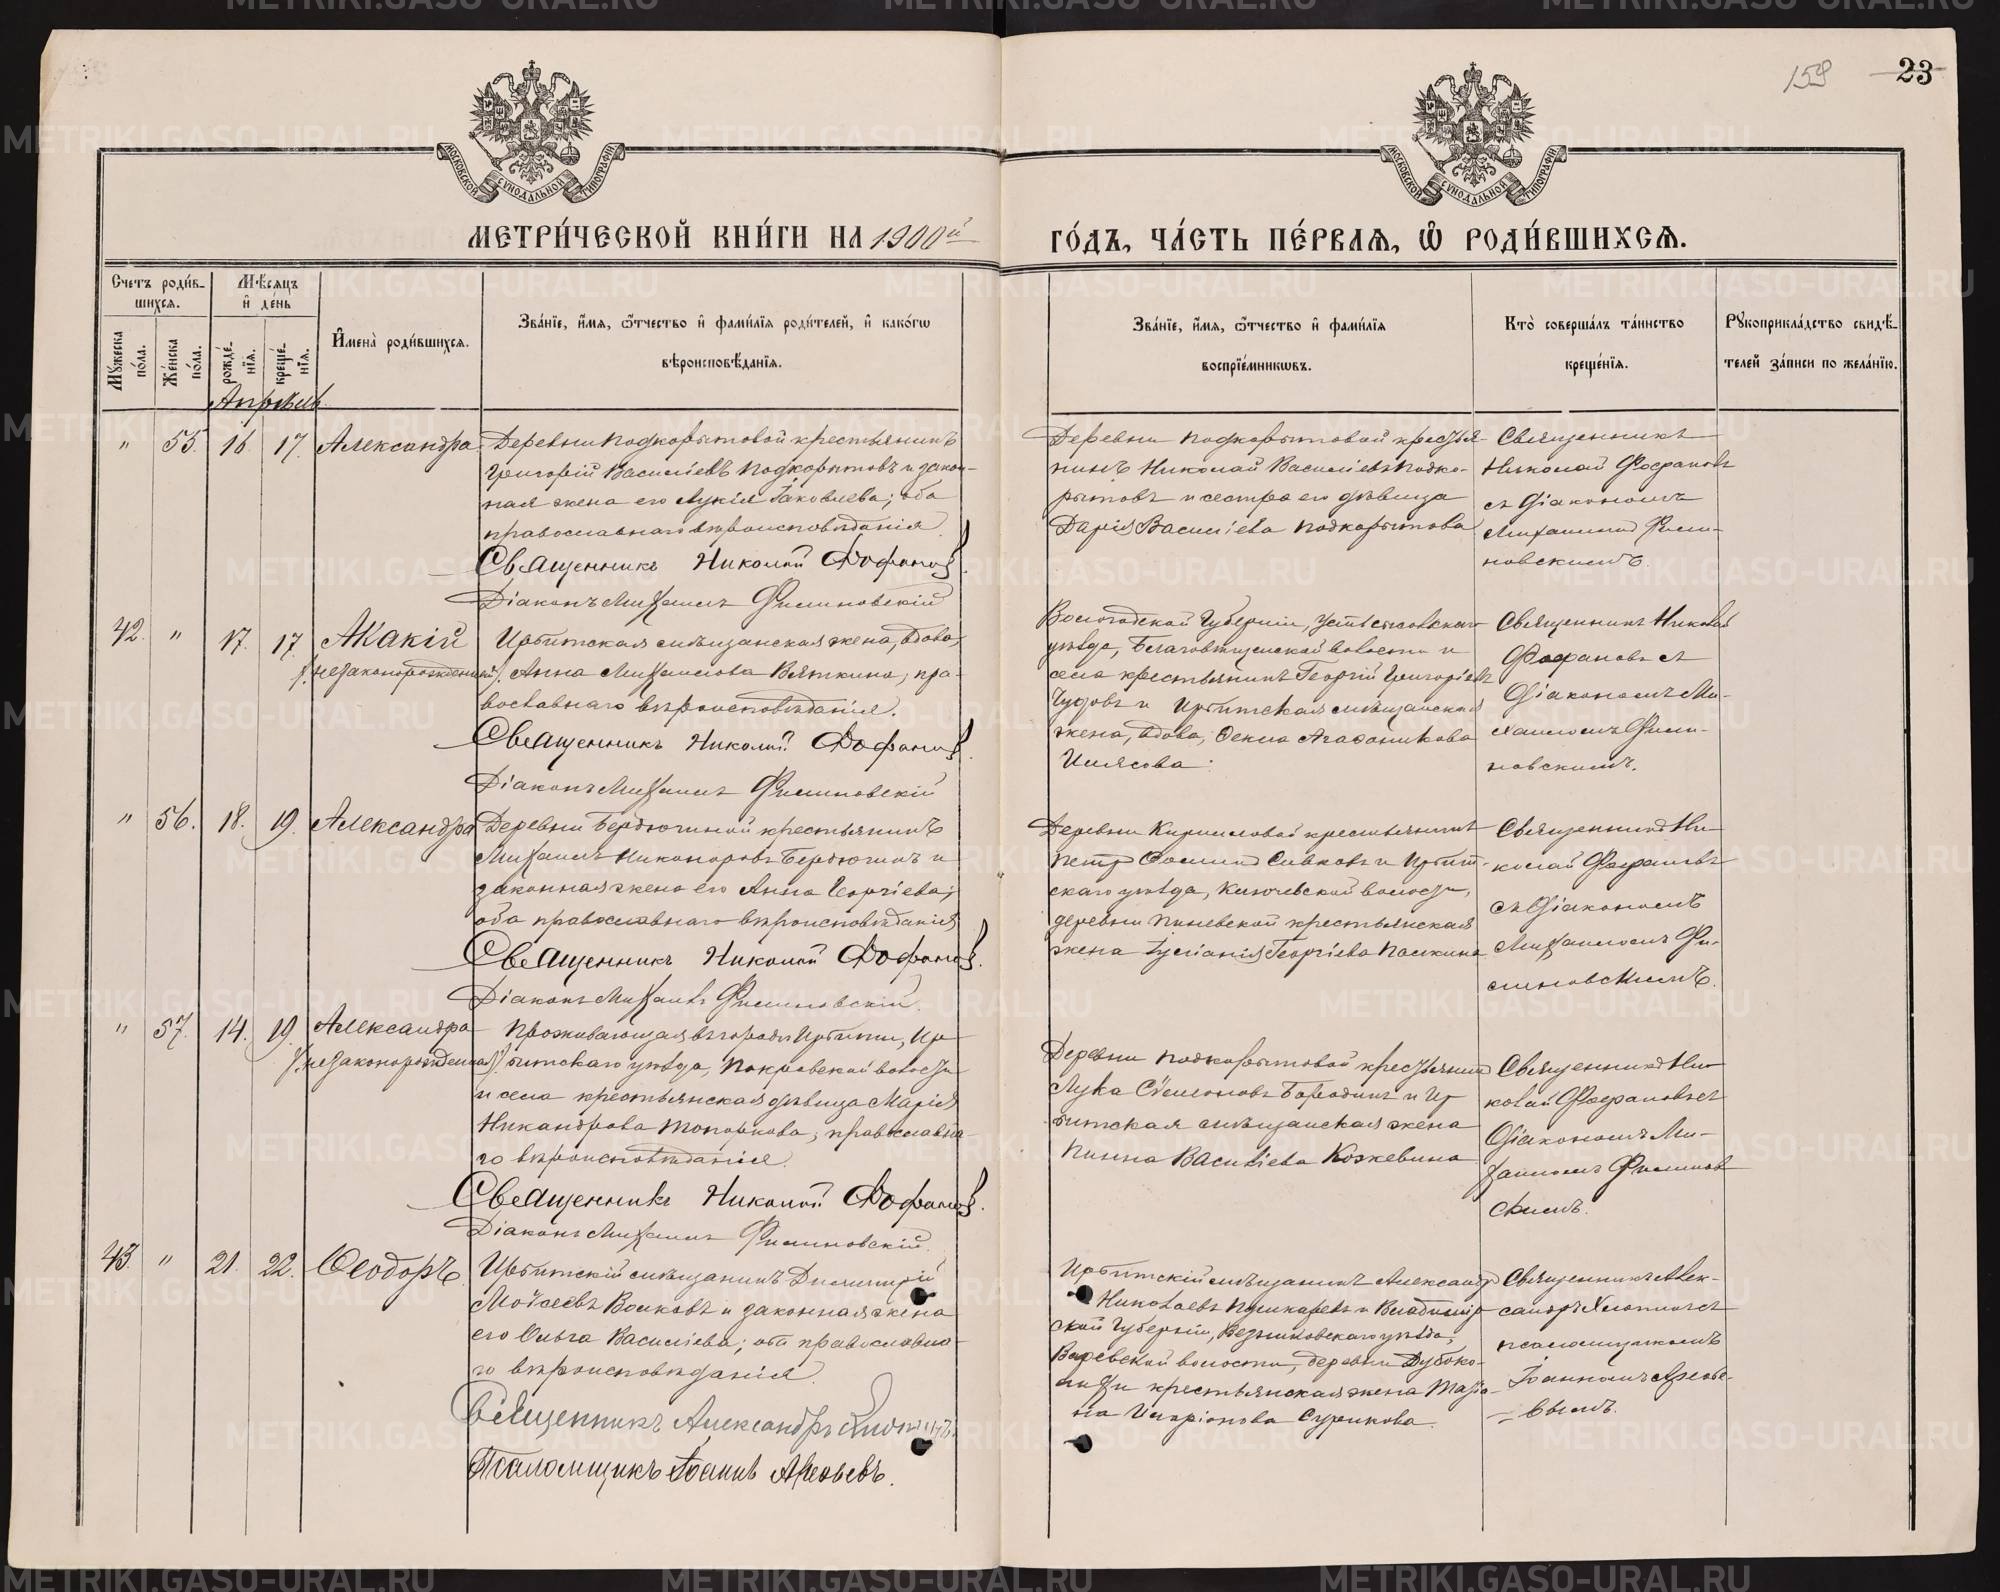 159 23
МОСКОВСКОЙ СѴНОДАЛЬНОЙ ТИПОГРАФИИ
МОСКОВСКОЙ СѴНОДАЛЬНОЙ ТИПОГРАФИИ
МЕТРИ́ЧЕСКОЙ КНИ́ГИ НА 1900й
ГО́ДЪ, ЧА́СТЬ ПЕ́РВАѦ, Ѡ҆ РОДИ́ВШИХСѦ.
Счетъ роди́в-
шихсѧ.
Мѣ́сѧцъ
и҆ де́нь
Мꙋ́жеска по́ла.
Же́нска по́ла.
рожде́-нїѧ.
креще́-нїѧ.
И҆мена̀ роди́вшихсѧ.
Зва́нїе, и҆́мѧ, ѻ҆́тчество и҆ фами́лїѧ роди́телей, и҆ како́гѡ
вѣроисповѣ́данїѧ.
Зва́нїе, и҆́мѧ, ѻ҆́тчество и҆ фами́лїѧ
воспрїе́мникѡвъ.
Кто̀ соверша́лъ та́инство
креще́нїѧ.
Рꙋкоприкла́дство свидѣ́-
телей за́писи по жела́нїю.
Апрѣль
" 55. 16. 17. Александра
Деревни Подкорытовой крестьянинъ
Григорій Васильевъ Подкорытовъ и закон-
ная жена его Лукія Іаковлева; оба
православнаго вѣроисповѣданія.
Священникъ Николай
Діаконъ Михаилъ Филиновскій
Деревни Подкорытовой крестья-
нинъ Николай Васильевъ Подко-
рытовъ и сестра его дѣвица
Дарія Васильева Подкорытова
Священникъ
Николай
съ Діакономъ
Михаиломъ Фили-
новскимъ.
42. " 17. 17. Акакій
/незаконорожденный/.
Ирбитская мѣщанская жена, вдова,
Анна Михаилова Вяткина, пра-
вославнаго вѣроисповѣданія.
Священникъ Николай
Діаконъ Михаилъ Филиновскій
Вологодской Губерніи, Устьсысольскаго
уѣзда, Благовѣщенской волости и
села крестьянинъ Георгій Григорьевъ
и Ирбитская мѣщанская
жена, вдова, Ѳекла Агаѳоникова
Священникъ Николай
съ
Діакономъ Ми-
хаиломъ Фили-
новскимъ.
" 56. 18. 19. Александра
Деревни Бердюгиной крестьянинъ
Михаилъ Никаноровъ Бердюгинъ и
законная жена его Анна Георгіева;
оба православнаго вѣроисповѣданія
Священникъ Николай
Діаконъ Михаилъ Филиновскій.
Деревни Кириловой крестьянинъ
Петръ Сивковъ и Ирбит-
скаго уѣзда, Ключевской волости,
деревни крестьянская
жена Георгіева
Священникъ Ни-
колай
съ Діакономъ
Михаиломъ Фи-
линовскимъ.
" 57. 14. 19. Александра
/незаконорожденная/.
Проживающая въ городѣ Ирбити, Ир-
битскаго уѣзда, Покровской волости
и села крестьянская дѣвица Марія
Никандрова Топоркова; православна-
го вѣроисповѣданія.
Священникъ Николай
Діаконъ Михаилъ Филиновскій.
Деревни Подкорытовой крестьянинъ
Лука Симеоновъ Бородинъ и Ир-
битская мѣщанская жена
Васильева Кожевина
Священникъ Ни-
колай съ
Діакономъ Ми-
хаиломъ Филинов
скимъ.
43. " 21. 22. Ѳеодоръ
Ирбитскій мѣщанинъ Димитрій
Моѵсеевъ Волковъ и законная жена
его Ольга Васильева; оба православна-
го вѣроисповѣданія.
Священникъ Александръ
Псаломщикъ Іоаннъ
Ирбитскій мѣщанинъ Александръ
Николаевъ Пушкаревъ и Владимір-
ской Губерніи, Вязниковскаго уѣзда,
волости, деревни Дубоко-
крестьянская жена Матро-
на Иларіонова Сурикова.
Священникъ Алек-
сандръ съ
псаломщикомъ
Іоанномъ